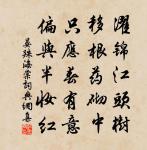 濯錦江頭樹
移根藥砌中
只應春有意
偏與半妝紅
晏殊海棠詞典網集